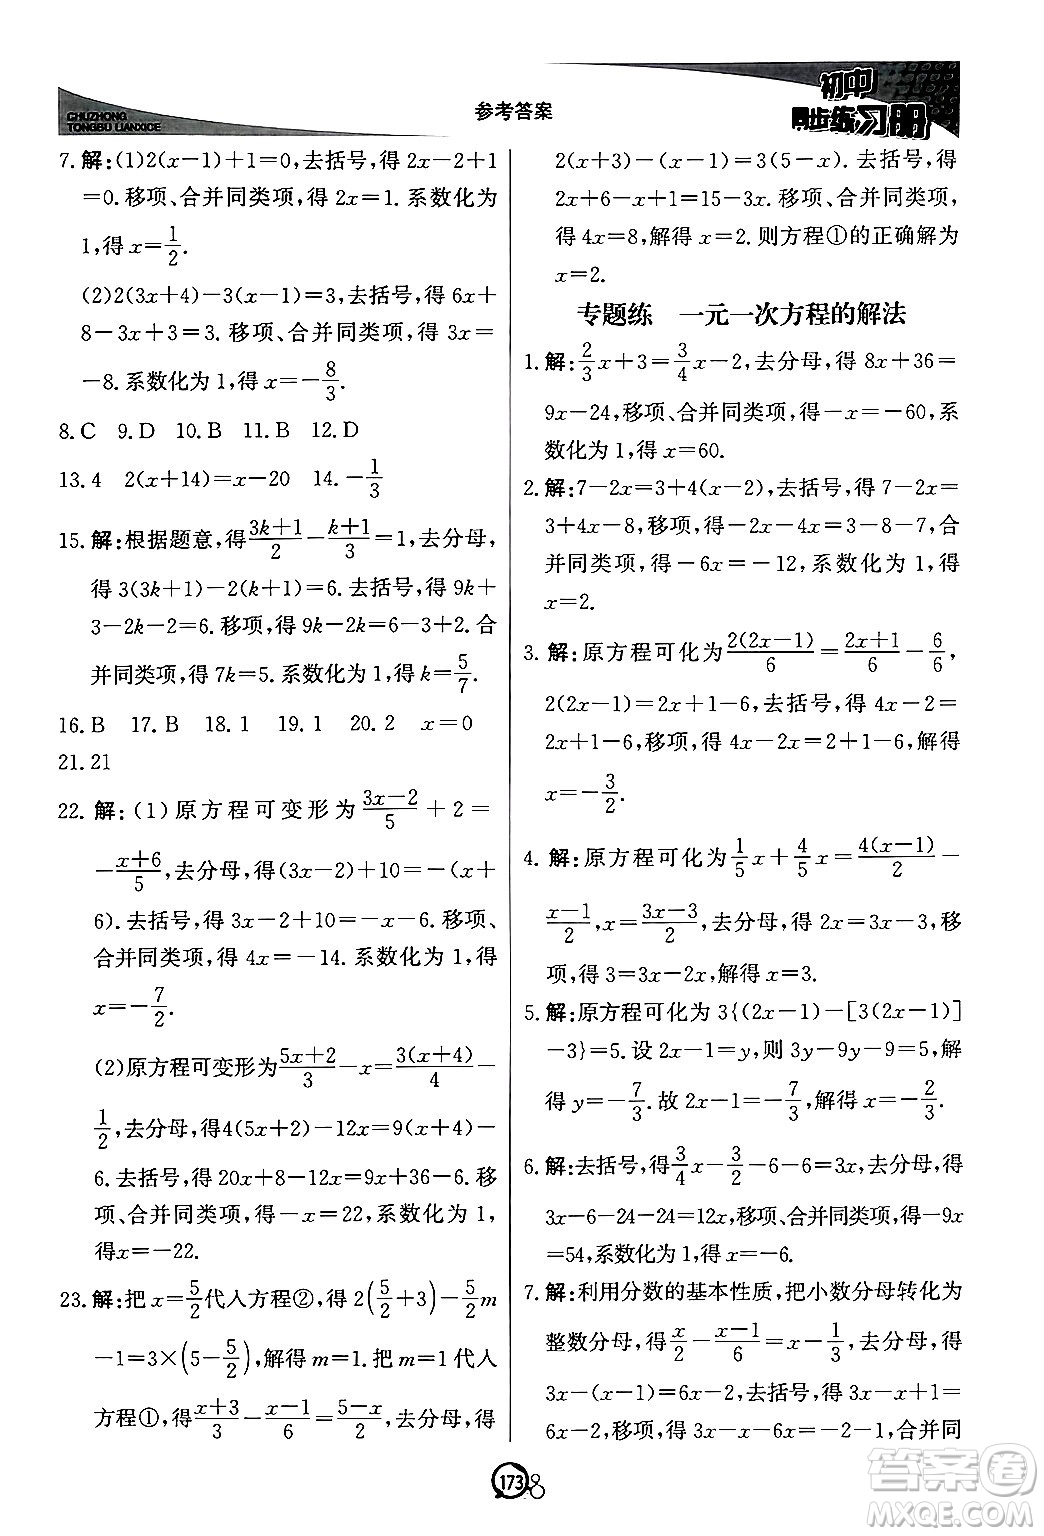 CHUZHONG
TONGBU LIANXICE
参考答案
初中
同步练习册
7. 解:(1)2(x-1)+1=0,去括号,得 2x-2+1
=0. 移项、合并同类项,得 2x=1. 系数化为
1,得 x=1/2.
(2)2(3x+4)-3(x-1)=3,去括号,得 6x+
8-3x+3=3. 移项、合并同类项,得 3x=
-8. 系数化为 1,得 x=-8/3.
8. C 9. D 10. B 11. B 12. D
13. 4 2(x+14)=x-20 14. -1/3
15. 解:根据题意,得(3k+1)/2-(k+1)/3=1,去分母,
得 3(3k+1)-2(k+1)=6. 去括号,得 9k+
3-2k-2=6. 移项,得 9k-2k=6-3+2. 合
并同类项,得 7k=5. 系数化为 1,得 k=5/7.
16. B 17. B 18. 1 19. 1 20. 2 x=0
21. 21
22. 解:(1)原方程可变形为(3x-2)/5+2=
-(x+6)/5,去分母,得(3x-2)+10=-(x+
6). 去括号,得 3x-2+10=-x-6. 移项、
合并同类项,得 4x=-14. 系数化为 1,得
x=-7/2.
(2)原方程可变形为(5x+2)/3-x=3(x+4)/4-
1/2,去分母,得 4(5x+2)-12x=9(x+4)-
6. 去括号,得 20x+8-12x=9x+36-6. 移
项、合并同类项,得-x=22,系数化为 1,
得x=-22.
23. 解:把 x=5/2代入方程②,得 2(5/2+3)-5/2m
-1=3×(5-5/2),解得 m=1. 把 m=1 代入
方程①,得(x+3)/3-(x-1)/6=(5-x)/2,去分母,得
2(x+3)-(x-1)=3(5-x). 去括号,得
2x+6-x+1=15-3x. 移项、合并同类项,
得 4x=8,解得 x=2. 则方程①的正确解为
x=2.
专题练 一元一次方程的解法
1. 解:2/3x+3=3/4x-2,去分母,得 8x+36=
9x-24,移项、合并同类项,得-x=-60,系
数化为 1,得 x=60.
2. 解:7-2x=3+4(x-2),去括号,得 7-2x=
3+4x-8,移项,得-2x-4x=3-8-7,合
并同类项,得-6x=-12,系数化为 1,得
x=2.
3. 解:原方程可化为2(2x-1)/6=(2x+1)/6-6/6,
2(2x-1)=2x+1-6,去括号,得 4x-2=
2x+1-6,移项,得 4x-2x=2+1-6,解得
x=-3/2.
4. 解:原方程可化为1/5x+4/5x=4(x-1)/2-
(x-1)/2,x=(3x-3)/2,去分母,得 2x=3x-3,移
项,得 3=3x-2x,解得 x=3.
5. 解:原方程可化为 3{(2x-1)-[3(2x-1)]
-3}=5. 设 2x-1=y,则 3y-9y-9=5,解
得 y=-7/3. 故 2x-1=-7/3,解得 x=-2/3.
6. 解:去括号,得3/4x-3/2-6-6=3x,去分母,得
3x-6-24-24=12x,移项、合并同类项,得-9x
=54,系数化为 1,得 x=-6.
7. 解:利用分数的基本性质,把小数分母转化为
整数分母,得x/2-(x-1)/6=x-1/3,去分母,得
3x-(x-1)=6x-2,去括号,得 3x-x+1=
6x-2,移项,得 3x-x-6x=-2-1,合并同
173
答案卷
MXQE.COM